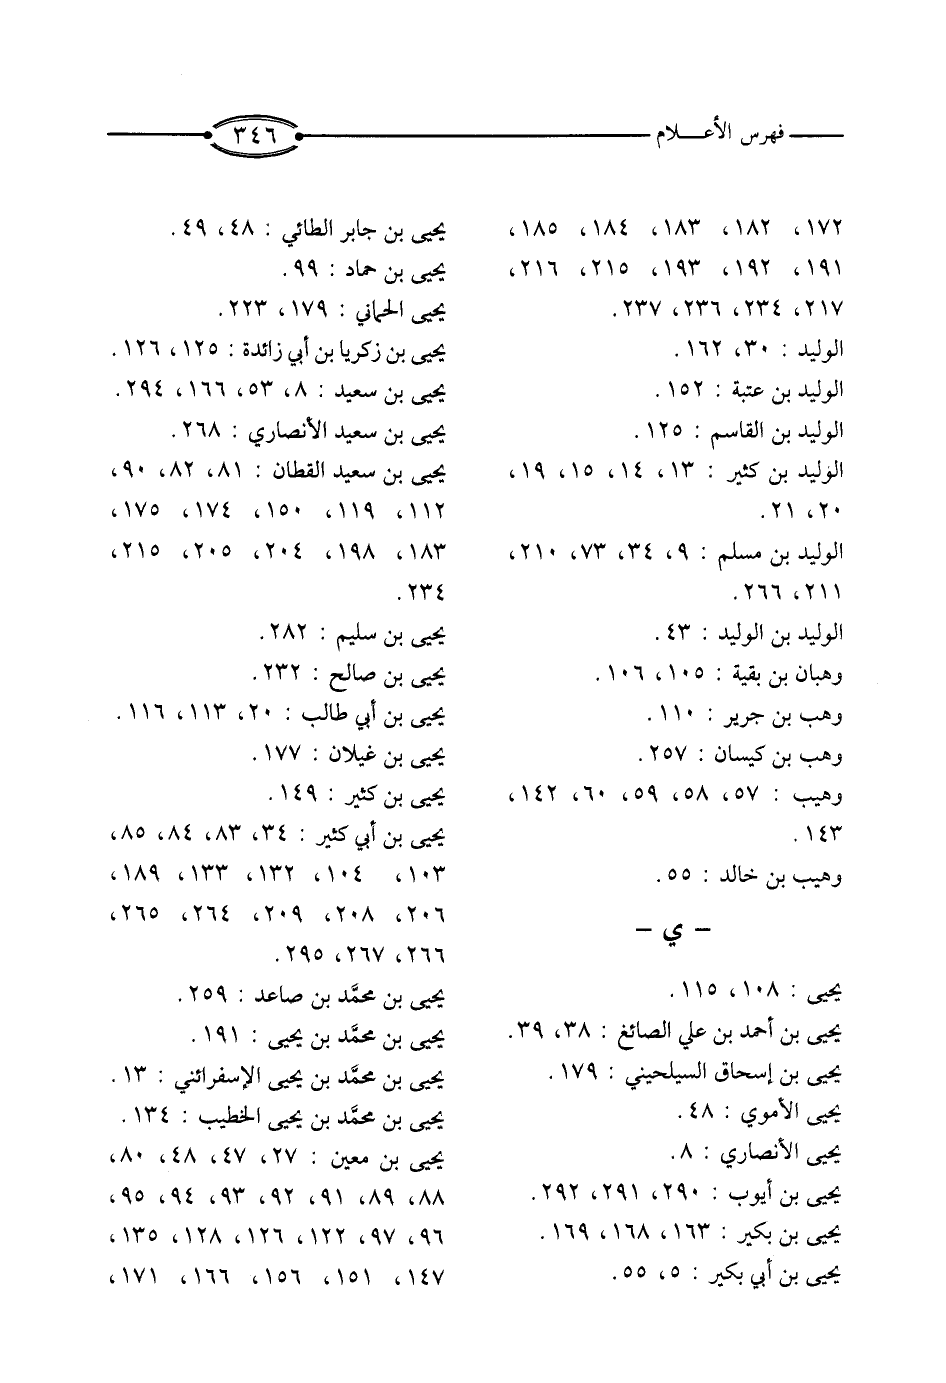 فهرس الأعـــلام
٣٤٦
١٧٢، ١٨٢، ١٨٣، ١٨٤، ١٨٥،
١٩١، ١٩٢، ١٩٣، ٢١٥، ٢١٦،
٢١٧، ٢٣٤، ٢٣٦، ٢٣٧.
الوليد : ٣٠، ١٦٢.
الوليد بن عتبة : ١٥٢.
الوليد بن القاسم : ١٢٥.
الوليد بن كثير : ١٣، ١٤، ١٥، ١٩،
٢٠، ٢١.
الوليد بن مسلم : ٩، ٣٤، ٧٣، ٢١٠،
٢١١، ٢٦٦.
الوليد بن الوليد : ٤٣.
وهبان بن بقية : ١٠٥، ١٠٦.
وهب بن جرير : ١١٠.
وهب بن كيسان : ٢٥٧.
وهيب : ٥٧، ٥٨، ٥٩، ٦٠، ١٤٢،
١٤٣.
وهيب بن خالد : ٥٥.
- ي -
يحيى : ١٠٨، ١١٥.
يحيى بن أحمد بن علي الصائغ : ٣٨، ٣٩.
يحيى بن إسحاق السيلحيني : ١٧٩.
يحيى الأموي : ٤٨.
يحيى الأنصاري : ٨.
يحيى بن أيوب : ٢٩٠، ٢٩١، ٢٩٢.
يحيى بن بكير : ١٦٣، ١٦٨، ١٦٩.
يحيى بن أبي بكير : ٥، ٥٥.
يحيى بن جابر الطائي : ٤٨، ٤٩.
يحيى بن حماد : ٩٩.
يحيى الحماني : ١٧٩، ٢٢٣.
يحيى بن زكريا بن أبي زائدة : ١٢٥، ١٢٦.
يحيى بن سعيد : ٨، ٥٣، ١٦٦، ٢٩٤.
يحيى بن سعيد الأنصاري : ٢٦٨.
يحيى بن سعيد القطان : ٨١، ٨٢، ٩٠،
١١٢، ١١٩، ١٥٠، ١٧٤، ١٧٥،
١٨٣، ١٩٨، ٢٠٤، ٢٠٥، ٢١٥،
٢٣٤.
يحيى بن سليم : ٢٨٢.
يحيى بن صالح : ٢٣٢.
يحيى بن أبي طالب : ٢٠، ١١٣، ١١٦.
يحيى بن غيلان : ١٧٧.
يحيى بن كثير : ١٤٩.
يحيى بن أبي كثير : ٣٤، ٨٣، ٨٤، ٨٥،
١٠٣، ١٠٤، ١٣٢، ١٣٣، ١٨٩،
٢٠٦، ٢٠٨، ٢٠٩، ٢٦٤، ٢٦٥،
٢٦٦، ٢٦٧، ٢٩٥.
يحيى بن محمَّد بن صاعد : ٢٥٩.
يحيى بن محمَّد بن يحيى : ١٩١.
يحيى بن محمَّد بن يحيى الإسفرائني : ١٣.
يحيى بن محمَّد بن يحيى الخطيب : ١٣٤.
يحيى بن معين : ٢٧، ٤٧، ٤٨، ٨٠،
٨٨، ٨٩، ٩١، ٩٢، ٩٣، ٩٤، ٩٥،
٩٦، ٩٧، ١٢٢، ١٢٦، ١٢٨، ١٣٥،
١٤٧، ١٥١، ١٥٦، ١٦٦، ١٧١،